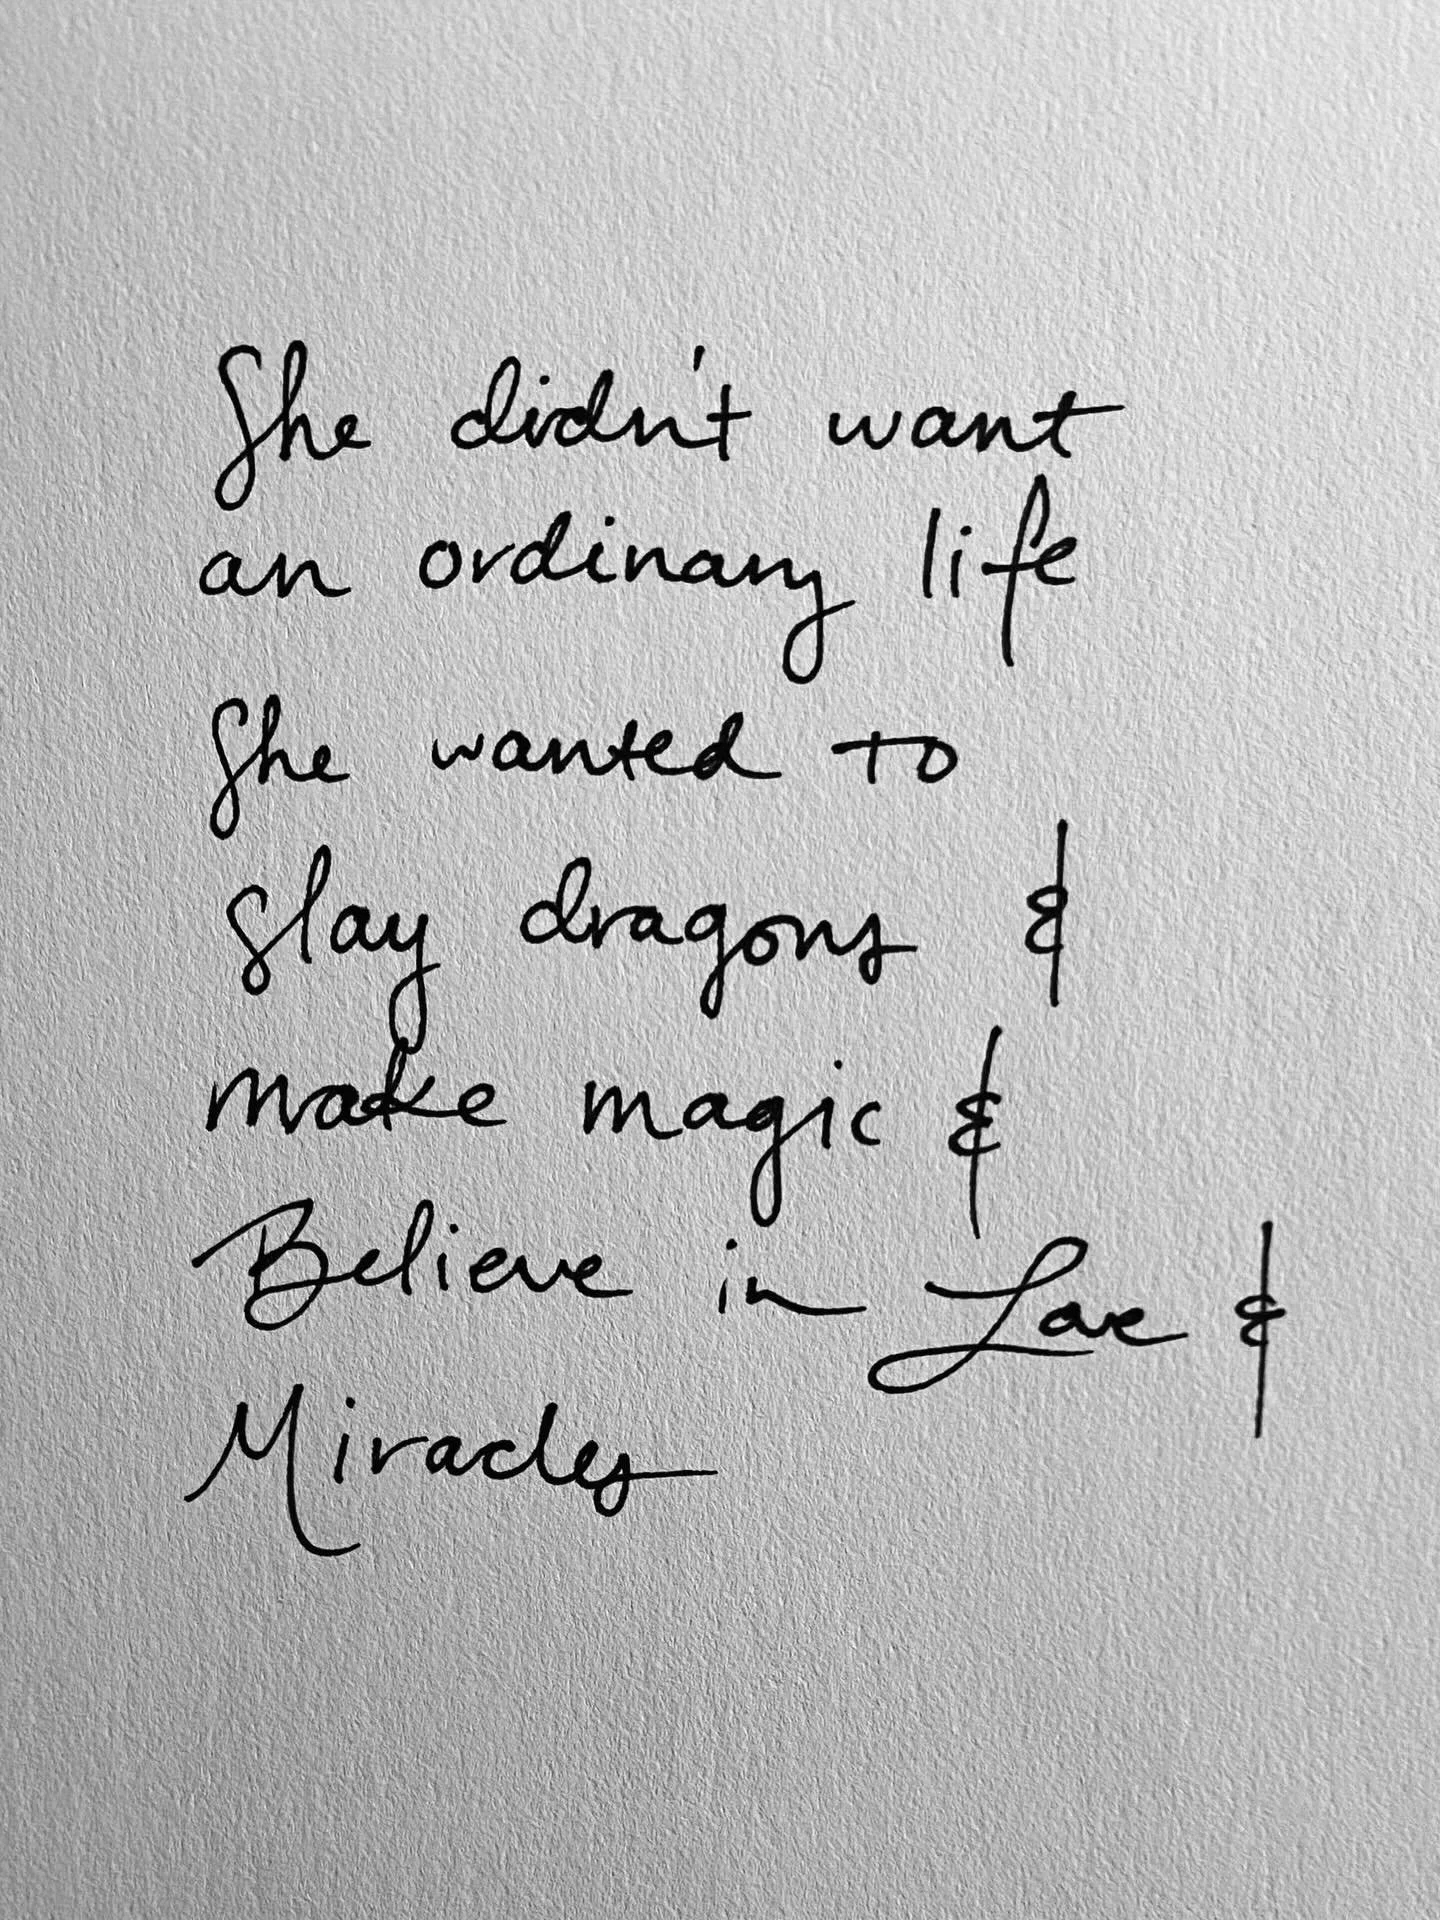 She didn't want
an ordinary life
She wanted to
slay dragons &
make magic &
Believe in Love &
Miracles